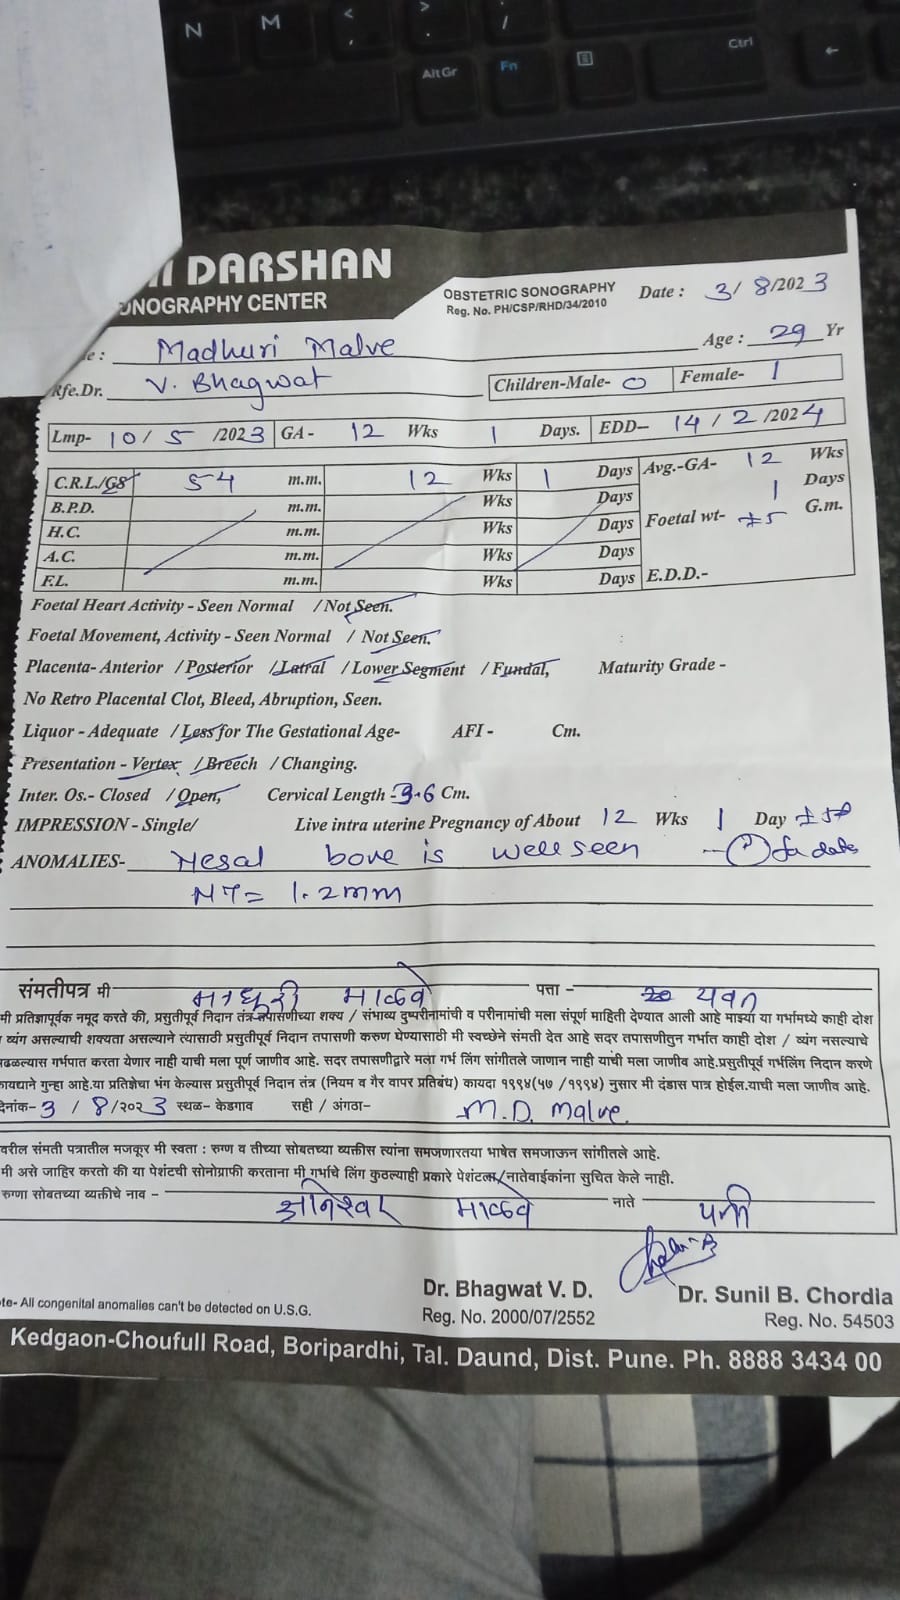 DARSHAN
ONOGRAPHY CENTER
OBSTETRIC SONOGRAPHY
Reg. No. PH/CSP/RHD/34/2010
Date : 3/ 8/2023
Madhuri Malve Age : 29 Yr
Rfe.Dr. V. Bhagwat
Children-Male- 0 Female- 1
Lmp- 10/ 5 /2023 GA - 12 Wks 1 Days. EDD- 14 / 2 /2024
C.R.L./GS 54 m.m. 12 Wks 1 Days Avg.-GA- 12 Wks
B.P.D. m.m. Wks Days 1 Days
H.C. m.m. Wks Days Foetal wt- G.m.
A.C. m.m. Wks Days
F.L. m.m. Wks Days E.D.D.-
Foetal Heart Activity - Seen Normal / Not Seen.
Foetal Movement, Activity - Seen Normal / Not Seen.
Placenta- Anterior / Posterior / Latral / Lower Segment / Fundal, Maturity Grade -
No Retro Placental Clot, Bleed, Abruption, Seen.
Liquor - Adequate / Less for The Gestational Age- AFI - Cm.
Presentation - Vertex / Breech / Changing.
Inter. Os.- Closed / Open, Cervical Length - 3.6 Cm.
IMPRESSION - Single/ Live intra uterine Pregnancy of About 12 Wks 1 Day
ANOMALIES- Nesal bone is well seen
NT = 1.2mm
संमतीपत्र मी माधुरी माळवे पत्ता - यवत
मी प्रतिज्ञापूर्वक नमूद करते की, प्रसुतीपूर्व निदान तंत्र तपासणीच्या शक्य / संभाव्य दुष्परीनामांची व परीनामांची मला संपूर्ण माहिती देण्यात आली आहे माझ्या या गर्भामध्ये काही दोश
व्यंग असल्याची शक्यता असल्याने त्यासाठी प्रसुतीपूर्व निदान तपासणी करुण घेण्यासाठी मी स्वच्छेने संमती देत आहे सदर तपासणीतुन गर्भात काही दोश / व्यंग नसल्याचे
आढळल्यास गर्भपात करता येणार नाही याची मला पूर्ण जाणीव आहे. सदर तपासणीद्वारे मला गर्भ लिंग सांगीतले जाणान नाही याची मला जाणीव आहे.प्रसुतीपूर्व गर्भलिंग निदान करणे
कायद्याने गुन्हा आहे.या प्रतिज्ञेचा भंग केल्यास प्रसुतीपूर्व निदान तंत्र (नियम व गैर वापर प्रतिबंध) कायदा १९९४(५७ /१९९४) नुसार मी दंडास पात्र होईल.याची मला जाणीव आहे.
दिनांक- 3 / 8/२०२3 स्थळ- केडगाव सही / अंगठा- M.D. Malve
वरील संमती पत्रातील मजकूर मी स्वता : रुग्ण व तीच्या सोबतच्या व्यक्तीस त्यांना समजणारतया भाषेत समजाऊन सांगीतले आहे.
मी असे जाहिर करतो की या पेशंटची सोनोग्राफी करताना मी गर्भाचे लिंग कुठल्याही प्रकारे पेशंटला/नातेवाईकांना सुचित केले नाही.
रुग्णा सोबतच्या व्यक्तीचे नाव - ज्ञानेश्वर माळवे नाते पत्नी
Dr. Bhagwat V. D. Dr. Sunil B. Chordia
Reg. No. 2000/07/2552 Reg. No. 54503
te- All congenital anomalies can't be detected on U.S.G.
Kedgaon-Choufull Road, Boripardhi, Tal. Daund, Dist. Pune. Ph. 8888 3434 00